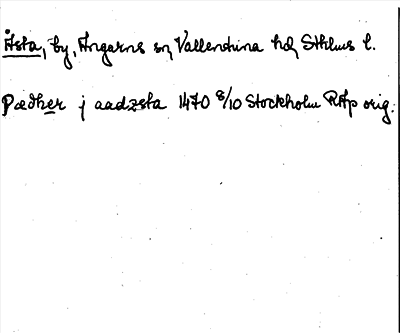 Åsta, by, Angarns sn, Vallentuna hd, Sthlms l.
Pædher j aadzsta 1470 8/10 Stockholm RAp orig.